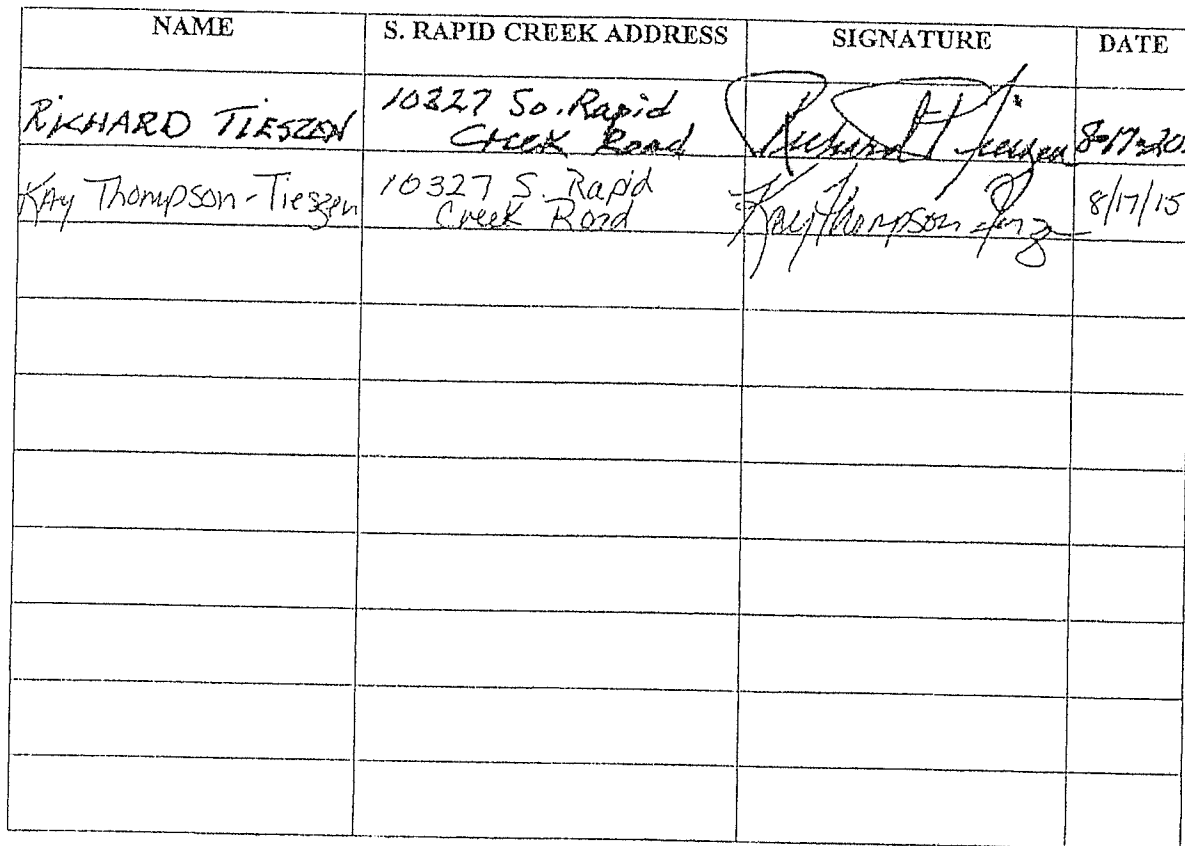 NAME S. RAPID CREEK ADDRESS SIGNATURE DATE
RICHARD TIESZEN 10327 So. Rapid Creek Road Richard Tieszen 8-17-20
Kay Thompson-Tieszen 10327 S. Rapid Creek Road Kay Thompson 8/17/15